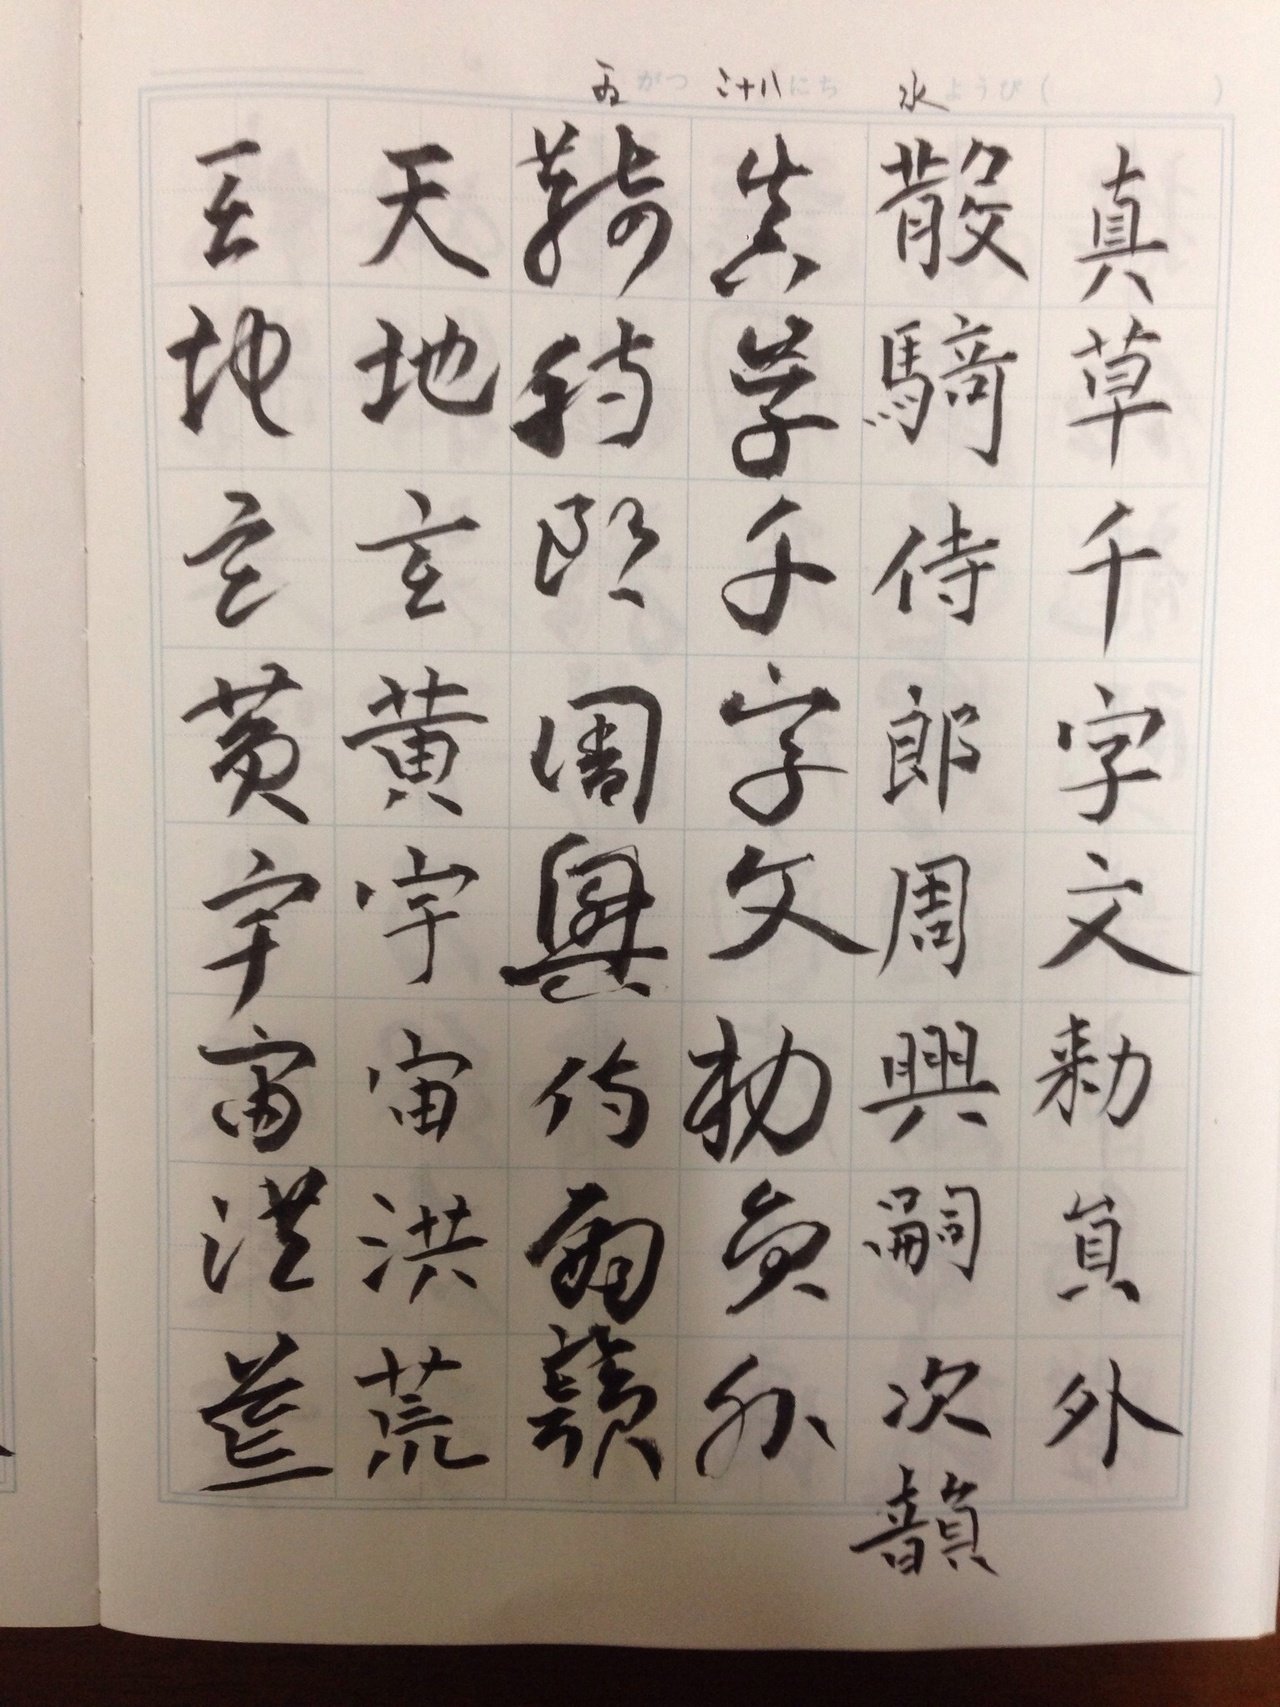 五がつ 二十八にち 水ようび( )
真草千字文勅員外
散騎侍郎周興嗣次韻
真草千字文勅員外
騎侍郎周興嗣韻
天地玄黄宇宙洪荒
天地玄黄宇宙洪荒